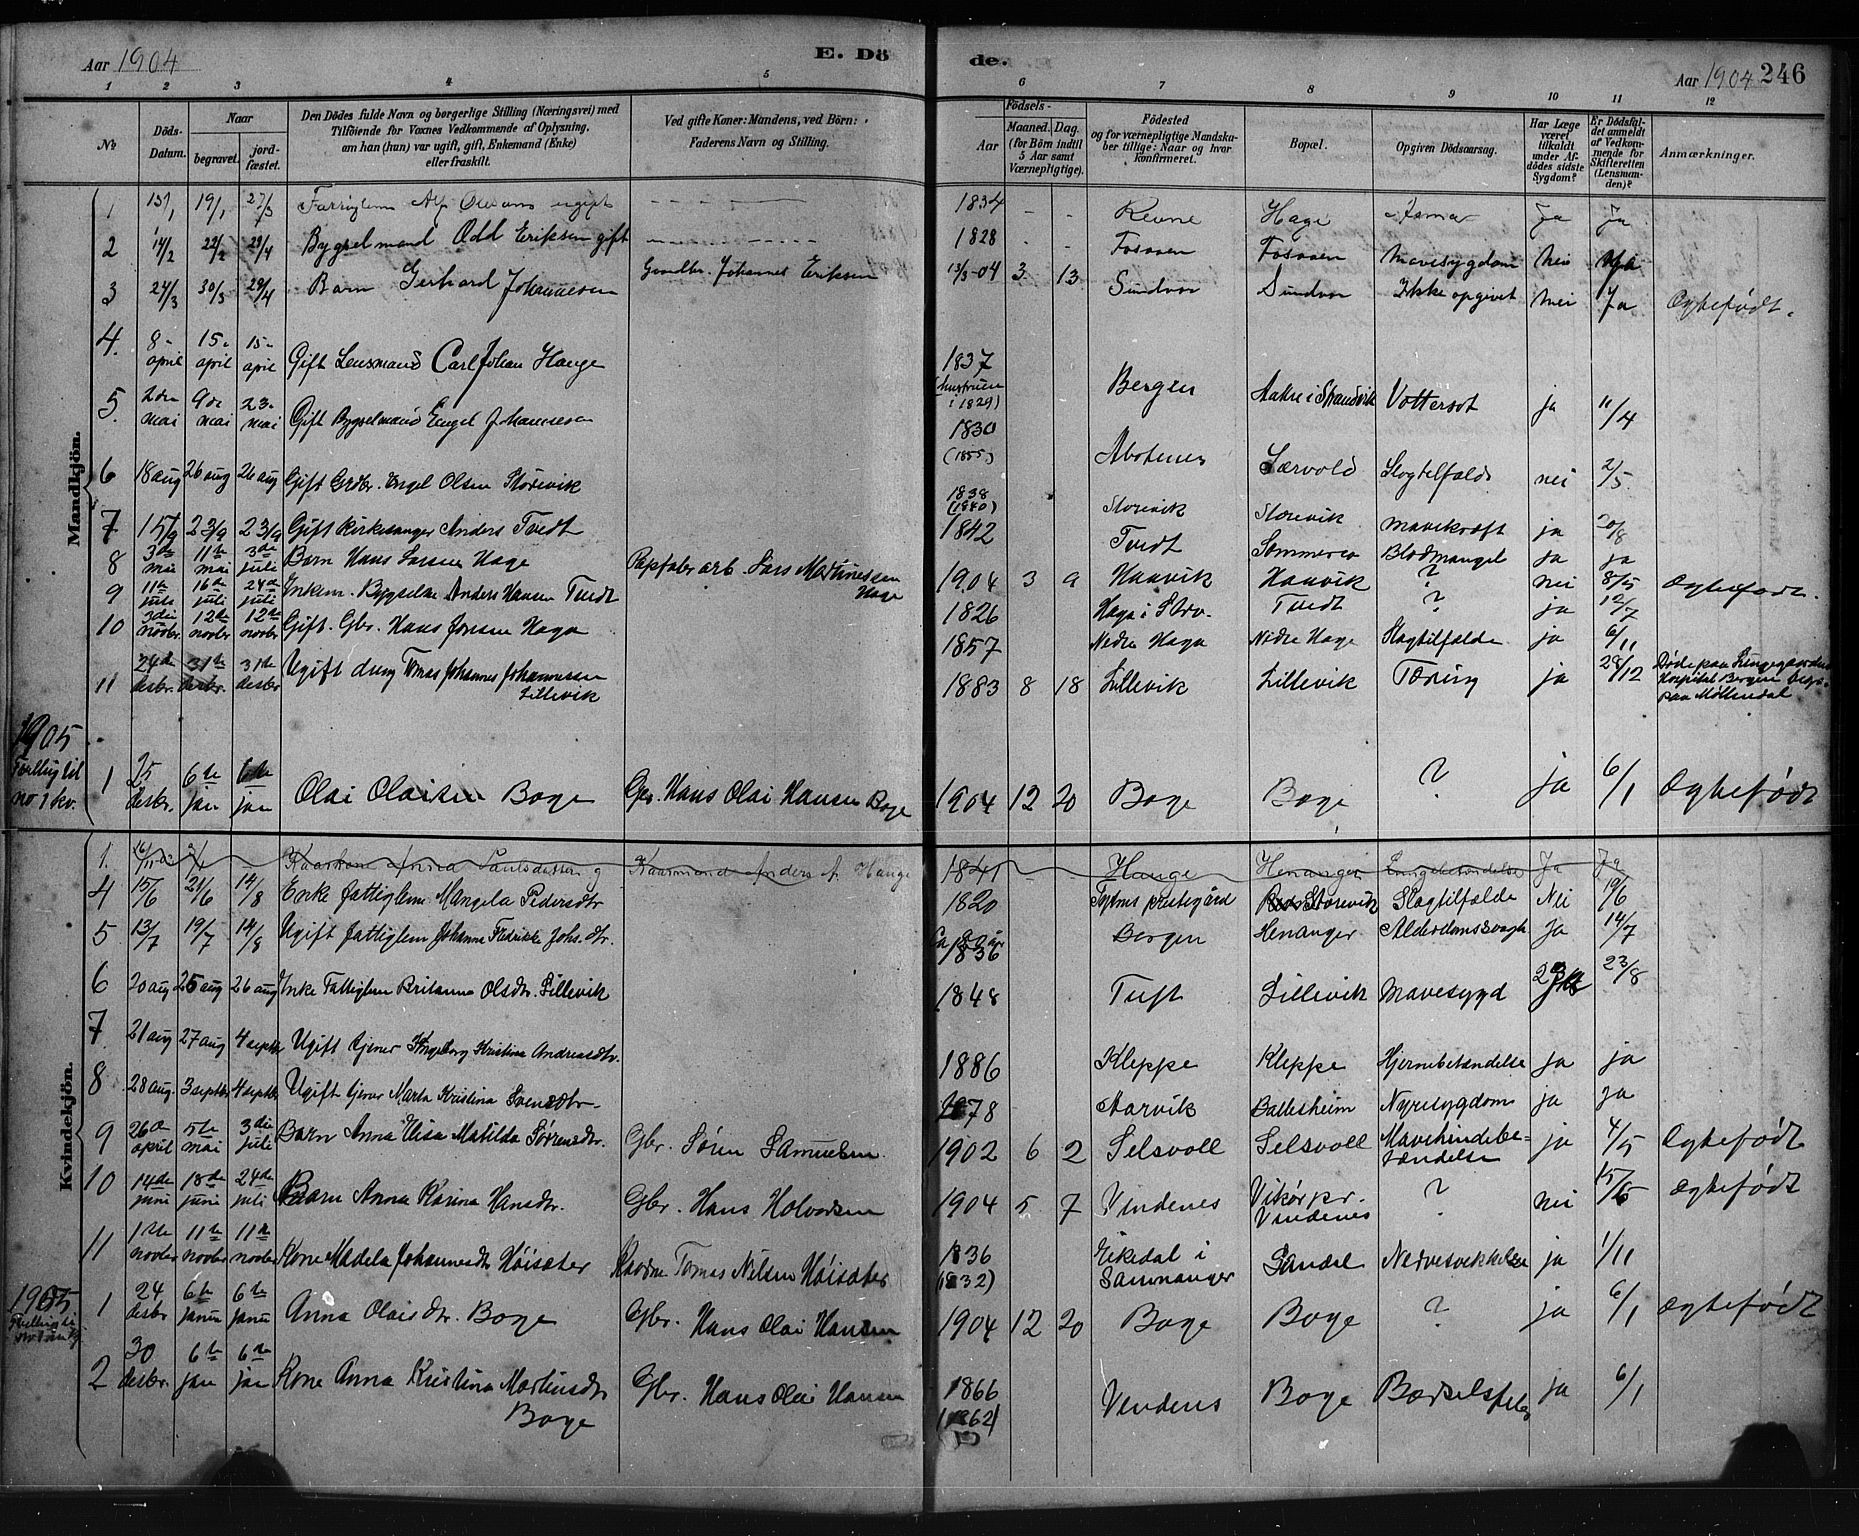 Aar 1904
E. Dö
de.
Aar 1904 246
1 2 3 4 5 6 7 8 9 10 11 12
№
Döds-Datum.
Naar
begravet.
jordfæstet.
Den Dödes fulde Navn og borgerlige Stilling (Næringsvei) med
Tilföiende for Voxnes Vedkommende af Oplysning,
om han (hun) var ugift, gift, Enkemand (Enke)
eller fraskilt.
Ved gifte Koner: Mandens, ved Börn:
Faderens Navn og Stilling.
Födsels-
Aar
Maaned. Dag.
(for Börn indtil
5 Aar samt
Værnepligtige).
Födested
og for værnepligtige Mandskaber tillige: Naar og hvor
konfirmeret.
Bopæl.
Opgiven Dödsaarsag.
Har Læge
været
tilkaldt
under Afdödes sidste
Sygdom?
Er Dödsfaldet anmeldt
af Vedkommende for
Skifteretten
(Lensmanden)?
Anmærkninger.
Mandkjön.
1 19/1 27/3 ugift 1834 - - Hage Ja Ja
2 14/2 22/2 29/4 Bygselmand Odd Eriksen gift 1828 - - Fosaaen Fosaaen Mavesygdom Nei Ja
3 24/3 30/3 29/4 Barn Gerhard Johannesen Gaardbr. Johannes Eriksen 13/3-04 3 13 Sundvor Sundvor Ikke opgivet Nei Ja Ægtefødt.
4. 8- april 15- april 15- april Gift Lensmand Carl Johan Hauge 1837 i 1829) Bergen Aakre i Strandvik Vattersot ja 11/4
5. 2den mai 9de mai 23- mai Gift Bygselmand Engel Johannesen 1830 (1855) Lærvold Slagtilfælde nei 2/5
6 18 aug 26 aug 26 aug Gift Grdbr. Engel Olsen Storevik 1838 (1840) Storevik Storevik mavekræft ja 20/8
7 15/9 23/9 23/9 Gift kirkesanger Anders Tvedt 1842 Tvedt Blodmangel ja ja
8 3de mai 11te mai 3die juli Barn Hans Larsen Hage Papfabr arb. Lars Martinessen Hage 1904 3 9 Haavik Haavik ? nei 8/5 Ægtefødt.
9 11te juli 16de juli 24de juli Enkem. Bygselm Anders Hansen Tvedt 1826 Tvedt ? ja 12/7
10 3die novbr. 12te novbr 12te novbr Gift. Gbr. Hans Jonsen Haga 1857 Nedre Haga Nedre Hage Slagtilfælde ja 6/11
11 24de desbr. 31te desbr. 31te desbr Ugift dreng Tomas Johannes Johannessen Lillevik 1883 8 18 Lillevik Lillevik Tæring ja 28/12 Døde paa Lungegaardens Hospital Bergen paa Møllendal
1905
no 1 kv.
1 25 desbr. 6te jan 6te jan Olai Olaisen Boge Gbr. Hans Olai Hansen Boge 1904 12 20 Boge Boge ? ja 6/1 Ægtefødt
Kvindekjön.
1. Anna Paulsdatter Anders A. Hauge 1841 Hauge Henanger Ja Ja
4 15/6 21/6 14/8 Enke fattiglem Mangela Pedersdtr 1820 Tysnes prestegård Storevik Slagtilfælde Nei 19/6
5 13/7 19/7 14/8 Ugift fattiglem Johanne Fredrikke Johs.dtr. 1836 Bergen Henanger Alderdomssvagh Ja 14/7
6 20 aug 25 aug 26 aug Enke Fattiglem Britanna Olsdtr. Lillevik 1848 Tuft Lillevik Mavesygd Ja 23/8
7 21 aug 27 aug 4 septbr Ugift tjener Ingeborg Kristina Andreasdtr. 1886 Kleppe Kleppe Hjernebetændelse ja ja
8 28 aug. 3 septbr 4 septbr Ugift tjener Marta Kristina Svensdtr. 1878 Aarvik Ballesheim Nyresygdom ja ja
9 26de april 5te mai 3die juli Barn Anna Elisa Matilda Sørensdtr. Gbr. Søren Samuelsen. 1902 6 2 Selsvoll Selsvoll Mavehindebetændelse ja 4/5 Ægtefødt
10 14de juni 18de juni 24de juli Barn Anna Karina Hansdtr. Gbr. Hans Halvorsen 1904 5 7 Vindenes Vikør pr. Vindenes ? nei 15/6 Ægtefødt
11 1ste novbr 11te novbr 11te novbr Kone Madela Johannesdtr Høisæter Tomas Nilsen Høisæter 1836 (1832) Eikedal i Sammanger Sandal Nervesvækkelse ja 1/11
1905.
1 24 desbr 6te janu 6te janu Anna Olaisdtr. Boge Gbr. Hans Olai Hansen 1904 12 20 Boge Boge ? ja 6/1 Ægtefødt
2 30 desbr. 6te jan 6te jan Kone Anna Kristina Martinsdtr Boge Gbr. Hans Olai Hansen 1866 (1862) Vendens Boge Barselsfeber ja 6/1